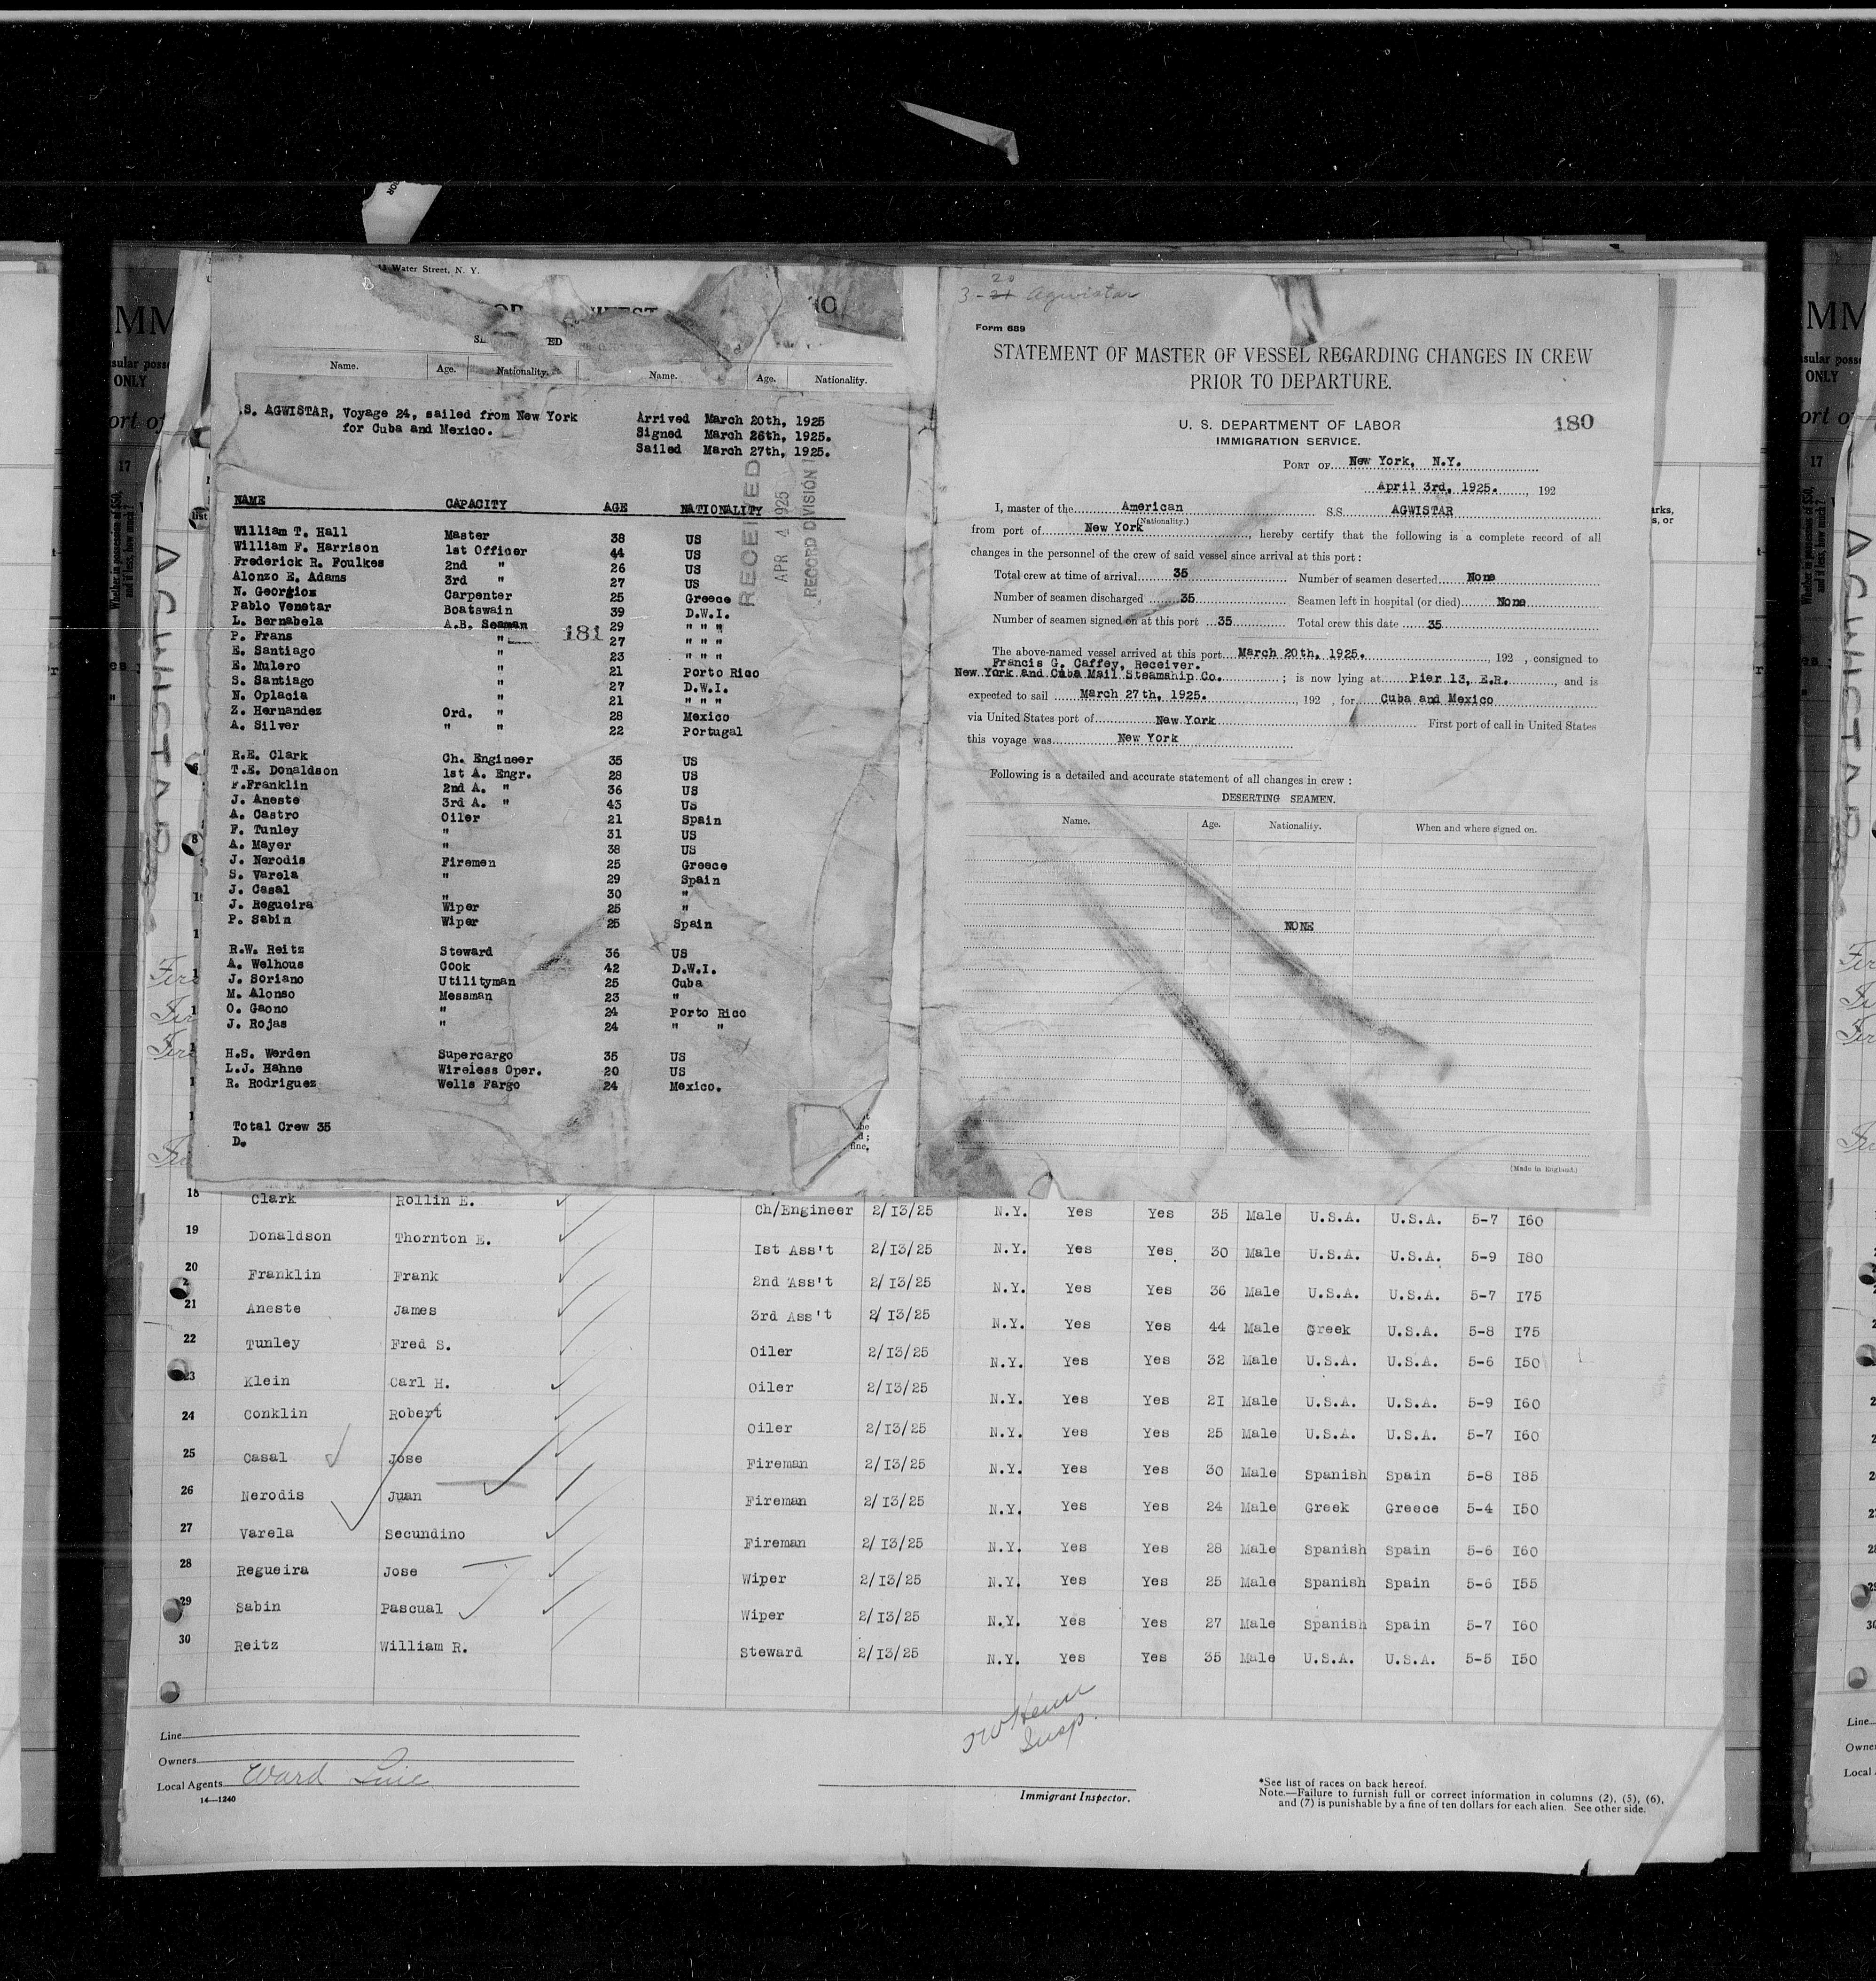 Water Street, N. Y.
Name. Age. Nationality. Name. Age. Nationality.
.S. AGWISTAR, Voyage 24, sailed from New York
for Cuba and Mexico.
Arrived March 20th, 1925
Signed March 26th, 1925.
Sailed March 27th, 1925.
RECEIVED
APR 4 1925
RECORD DIVISION
NAME CAPACITY AGE NATIONALITY
William T. Hall Master 38 US
William F. Harrison 1st Officer 44 US
Frederick R. Foulkes 2nd " 26 US
Alonzo E. Adams 3rd " 27 US
N. Georgios Carpenter 25 Greece
Pablo Venetar Boatswain 39 D.W.I.
L. Bernabela A.B. Seaman 29 " " "
P. Frans " 27 " " "
E. Santiago " 23 " " "
E. Mulero " 21 Porto Rico
S. Santiago " 27 D.W.I.
N. Oplacia " 21 " " "
Z. Hernandez Ord. " 28 Mexico
A. Silver " " 22 Portugal
181
R.E. Clark Ch. Engineer 35 US
T.E. Donaldson 1st A. Engr. 28 US
F.Franklin 2nd A. " 36 US
J. Aneste 3rd A. " 43 US
A. Castro Oiler 21 Spain
F. Tunley " 31 US
A. Mayer " 38 US
J. Nerodis Firemen 25 Greece
S. Varela " 29 Spain
J. Casal " 30 "
J. Regueira Wiper 25 "
P. Sabin Wiper 25 Spain
R.W. Reitz Steward 36 US
A. Welhous Cook 42 D.W.I.
J. Soriano Utilityman 25 Cuba
M. Alonso Messman 23 "
O. Gaono " 24 Porto Rico
J. Rojas " 24 " "
H.S. Werden Supercargo 35 US
L.J. Hahne Wireless Oper. 20 US
R. Rodriguez Wells Fargo 24 Mexico.
Total Crew 35
D.
20
3-21 Agwistar
Form 689
STATEMENT OF MASTER OF VESSEL REGARDING CHANGES IN CREW
PRIOR TO DEPARTURE.
U. S. DEPARTMENT OF LABOR
IMMIGRATION SERVICE.
180
PORT OF New York, N.Y.
April 3rd, 1925. , 192
I, master of the American S.S. AGWISTAR
(Nationality.)
from port of New York , hereby certify that the following is a complete record of all
changes in the personnel of the crew of said vessel since arrival at this port :
Total crew at time of arrival 35 Number of seamen deserted None
Number of seamen discharged 35 Seamen left in hospital (or died) None
Number of seamen signed on at this port 35 Total crew this date 35
The above-named vessel arrived at this port March 20th, 1925. , 192 , consigned to
Francis G. Caffey, Receiver.
New York and Cuba Mail Steamship Co. ; is now lying at Pier 13, E.R. , and is
expected to sail March 27th, 1925. , 192 , for Cuba and Mexico
via United States port of New York First port of call in United States
this voyage was New York
Following is a detailed and accurate statement of all changes in crew :
DESERTING SEAMEN.
Name. Age. Nationality. When and where signed on.
NONE
(Made in England.)
18 Clark Rollin E. Ch/Engineer 2/13/25 N.Y. Yes Yes 35 Male U.S.A. U.S.A. 5-7 160
19 Donaldson Thornton E. Ist Ass't 2/13/25 N.Y. Yes Yes 30 Male U.S.A. U.S.A. 5-9 180
20 Franklin Frank 2nd Ass't 2/13/25 N.Y. Yes Yes 36 Male U.S.A. U.S.A. 5-7 175
21 Aneste James 3rd Ass't 2/13/25 N.Y. Yes Yes 44 Male Greek U.S.A. 5-8 175
22 Tunley Fred S. Oiler 2/13/25 N.Y. Yes Yes 32 Male U.S.A. U.S.A. 5-6 150
23 Klein Carl H. Oiler 2/13/25 N.Y. Yes Yes 21 Male U.S.A. U.S.A. 5-9 160
24 Conklin Robert Oiler 2/13/25 N.Y. Yes Yes 25 Male U.S.A. U.S.A. 5-7 160
25 Casal Jose Fireman 2/13/25 N.Y. Yes Yes 30 Male Spanish Spain 5-8 185
26 Nerodis Juan Fireman 2/13/25 N.Y. Yes Yes 24 Male Greek Greece 5-4 150
27 Varela Secundino Fireman 2/13/25 N.Y. Yes Yes 28 Male Spanish Spain 5-6 160
28 Regueira Jose Wiper 2/13/25 N.Y. Yes Yes 25 Male Spanish Spain 5-6 155
29 Sabin Pascual Wiper 2/13/25 N.Y. Yes Yes 27 Male Spanish Spain 5-7 160
30 Reitz William R. Steward 2/13/25 N.Y. Yes Yes 35 Male U.S.A. U.S.A. 5-5 150
Line
Owners
Local Agents Ward Line
14—1240
Insp.
Immigrant Inspector.
*See list of races on back hereof.
Note.—Failure to furnish full or correct information in columns (2), (5), (6),
and (7) is punishable by a fine of ten dollars for each alien. See other side.
AGWISTAR